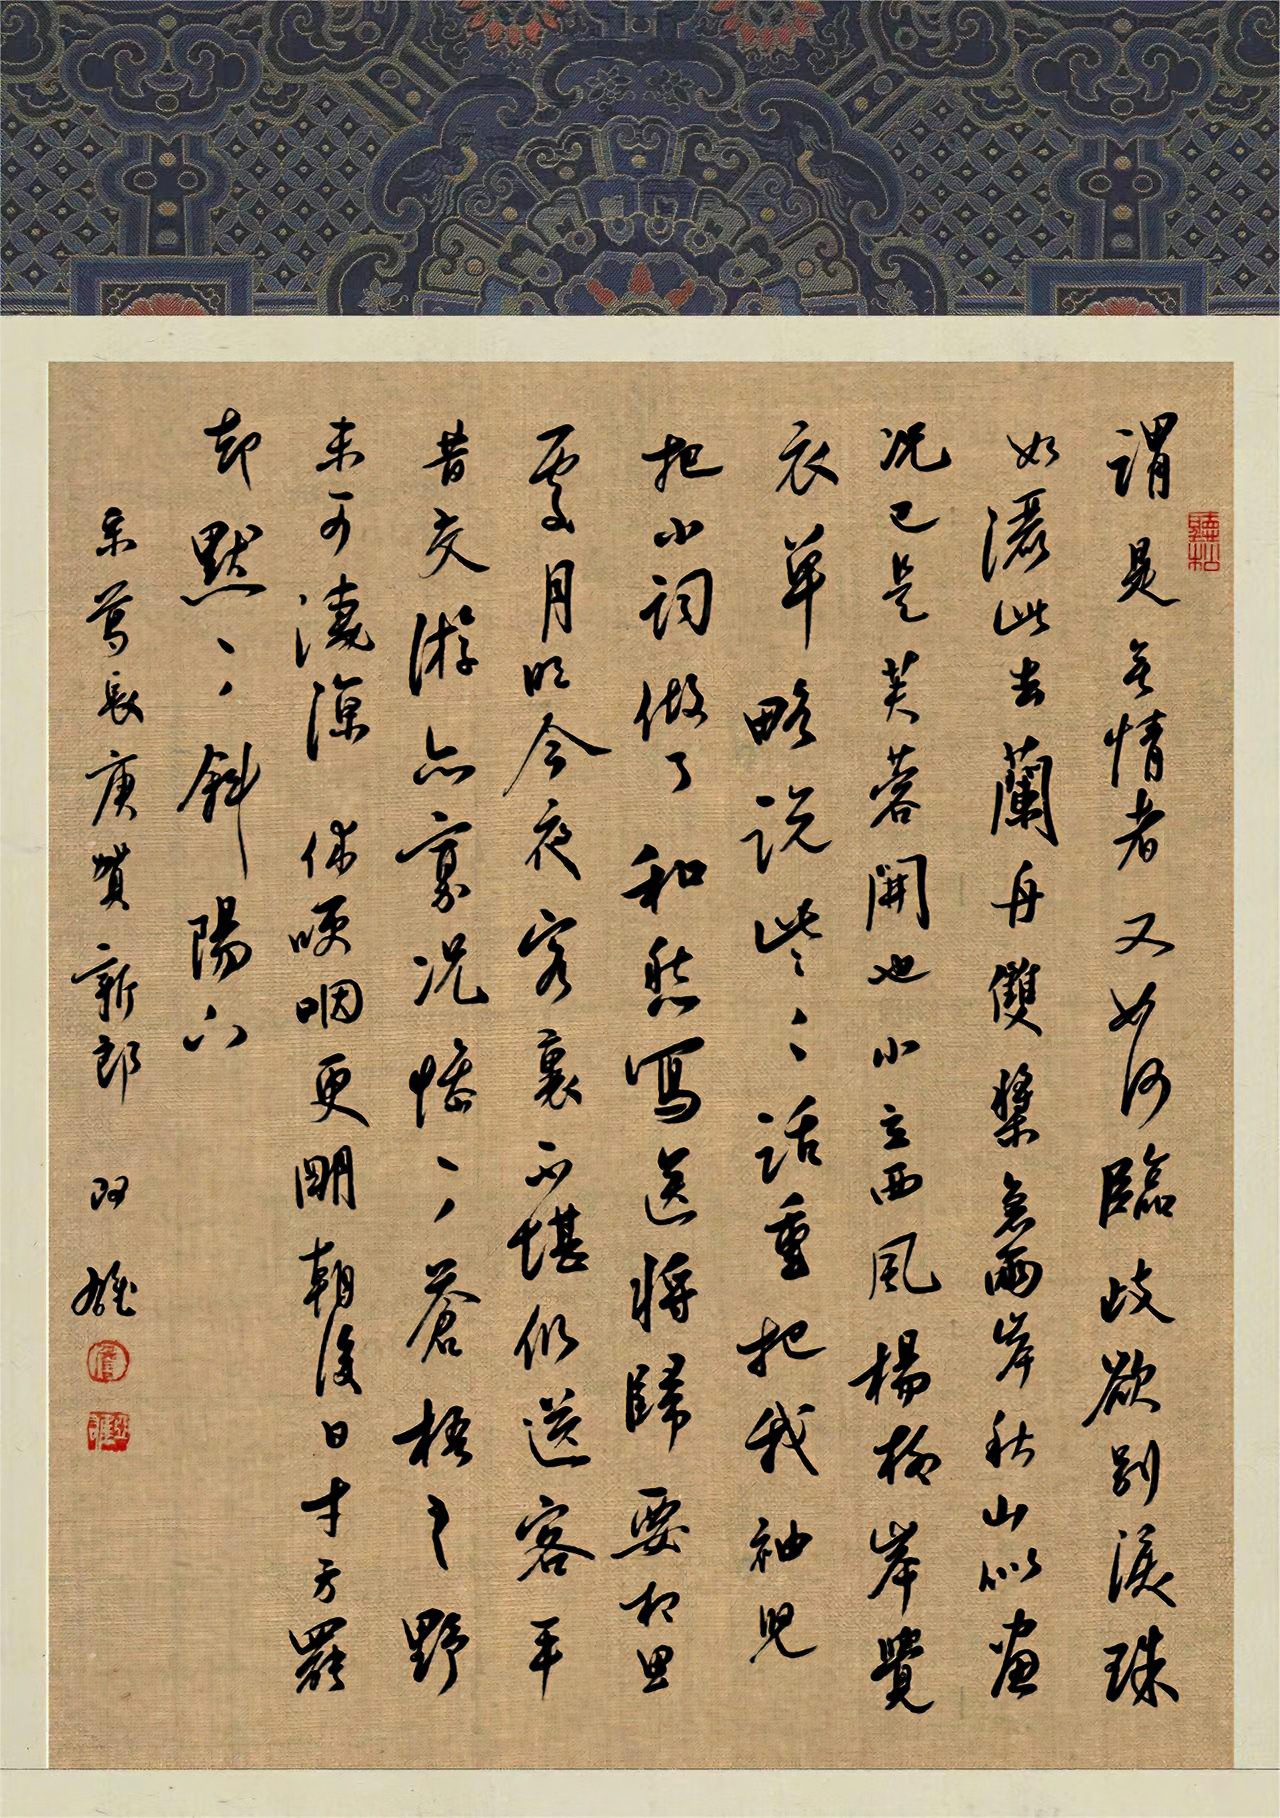 聽松
謂是無情者又如何臨歧欲別淚珠
如灑此去蘭舟雙槳急兩岸秋山似畫
况已是芙蓉開也小立西風楊柳岸覺
衣單略說些些話重把我袖兒
把小詞做了和愁寫送將歸要相思
處月明今夜客裏不堪仍送客平
昔交游亦寡况慘慘蒼梧之野
未可凄涼休哽咽更明朝後日才方罷
却默默斜陽下
宋葛長庚賀新郎